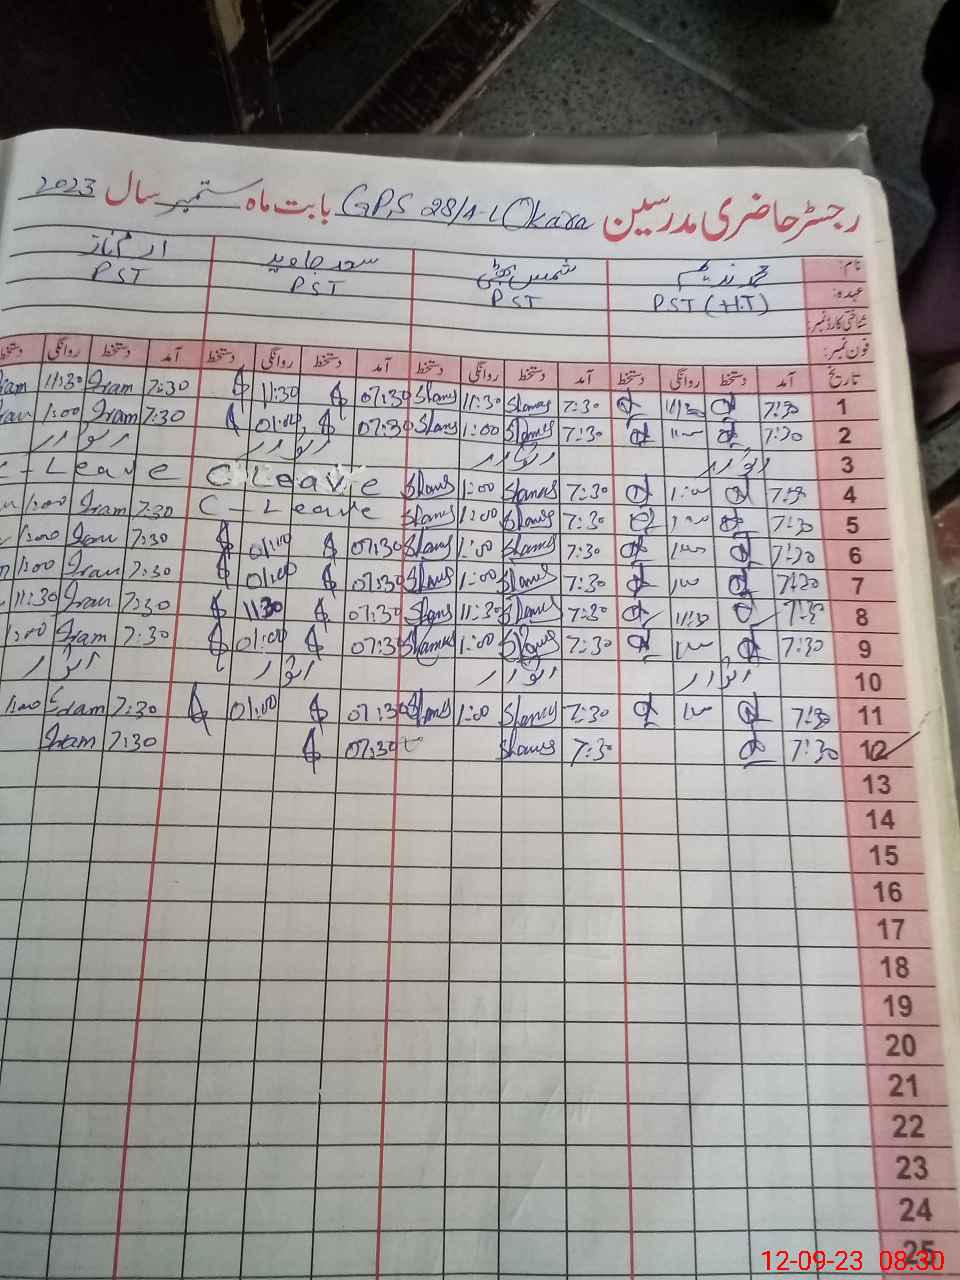 رجسٹر حاضری مدرسین GPS 28/1-L Okara بابت ماہ ستمبر سال 2023
نام: محمد ندیم شمس
عہدہ: PST (H.T) PST PST PST
شناختی کارڈ نمبر:
فون نمبر:
تاریخ آمد دستخط روانگی دستخط آمد دستخط روانگی دستخط آمد دستخط روانگی دستخط آمد دستخط روانگی دستخط
1 7:30 11:30 7:30 Shams 11:30 Shams 07:30 11:30 7:30 Iram 11:30
2 7:30 1:00 7:30 Shams 1:00 Shams 07:30 01:00 7:30 Iram 1:00
3 اتوار اتوار اتوار اتوار
4 7:30 1:00 7:30 Shams 1:00 Shams C Leave C-Leave
5 7:30 1:00 7:30 Shams 1:00 Shams C-Leave 7:30 Iram 1:00
6 7:30 1:00 7:30 Shams 1:00 Shams 07:30 01:00 7:30 Iram 1:00
7 7:30 1:00 7:30 Shams 1:00 Shams 07:30 01:00 7:30 Iram 1:00
8 7:30 11:30 7:30 Shams 11:30 Shams 07:30 11:30 7:30 Iram 11:30
9 7:30 1:00 7:30 Shams 1:00 Shams 07:30 01:00 7:30 Iram 1:00
10 اتوار اتوار اتوار اتوار
11 7:30 1:00 7:30 Shams 1:00 Shams 07:30 01:00 7:30 Iram 1:00
12 7:30 7:30 Shams 07:30 7:30 Iram
13
14
15
16
17
18
19
20
21
22
23
24
25
12-09-23 08:30